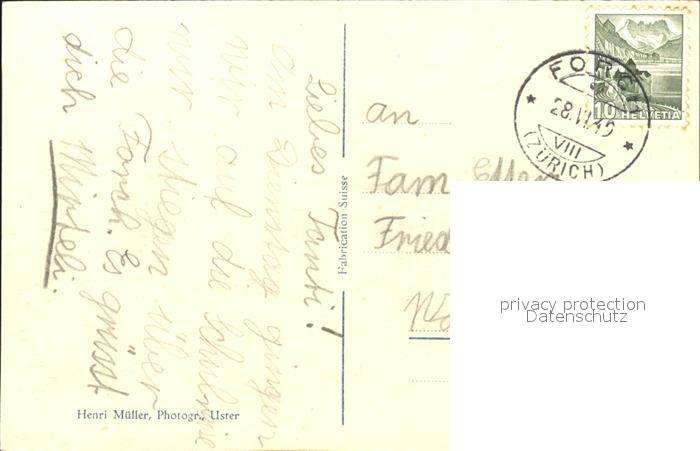 Liebes Tanti!
am Dienstag gingen
wir auf die Schulreise
wir stiegen über
die Forch. Es grüsst
dich
Fabrication Suisse
Henri Müller, Photogr., Uster
an
Fam.
Fried
FORCH
28.IV.49
VIII
(ZÜRICH)
10 HELVETIA
privacy protection
Datenschutz